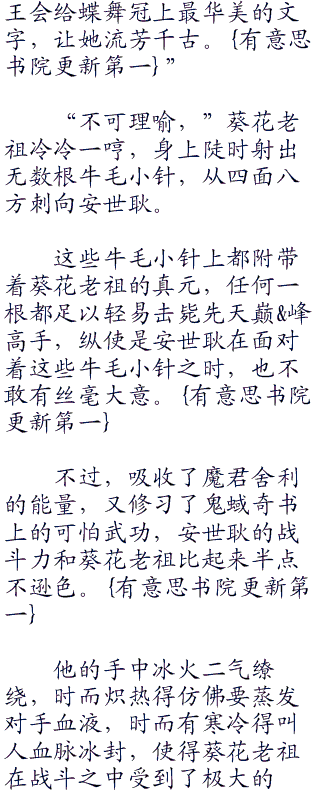 王会给蝶舞冠上最华美的文
字，让她流芳千古。{有意思
书院更新第一}”
“不可理喻，”葵花老
祖冷冷一哼，身上陡时射出
无数根牛毛小针，从四面八
方刺向安世耿。
这些牛毛小针上都附带
着葵花老祖的真元，任何一
根都足以轻易击毙先天巅&峰
高手，纵使是安世耿在面对
着这些牛毛小针之时，也不
敢有丝毫大意。{有意思书院
更新第一}
不过，吸收了魔君舍利
的能量，又修习了鬼蜮奇书
上的可怕武功，安世耿的战
斗力和葵花老祖比起来半点
不逊色。{有意思书院更新第
一}
他的手中冰火二气缭
绕，时而炽热得仿佛要蒸发
对手血液，时而有寒冷得叫
人血脉冰封，使得葵花老祖
在战斗之中受到了极大的